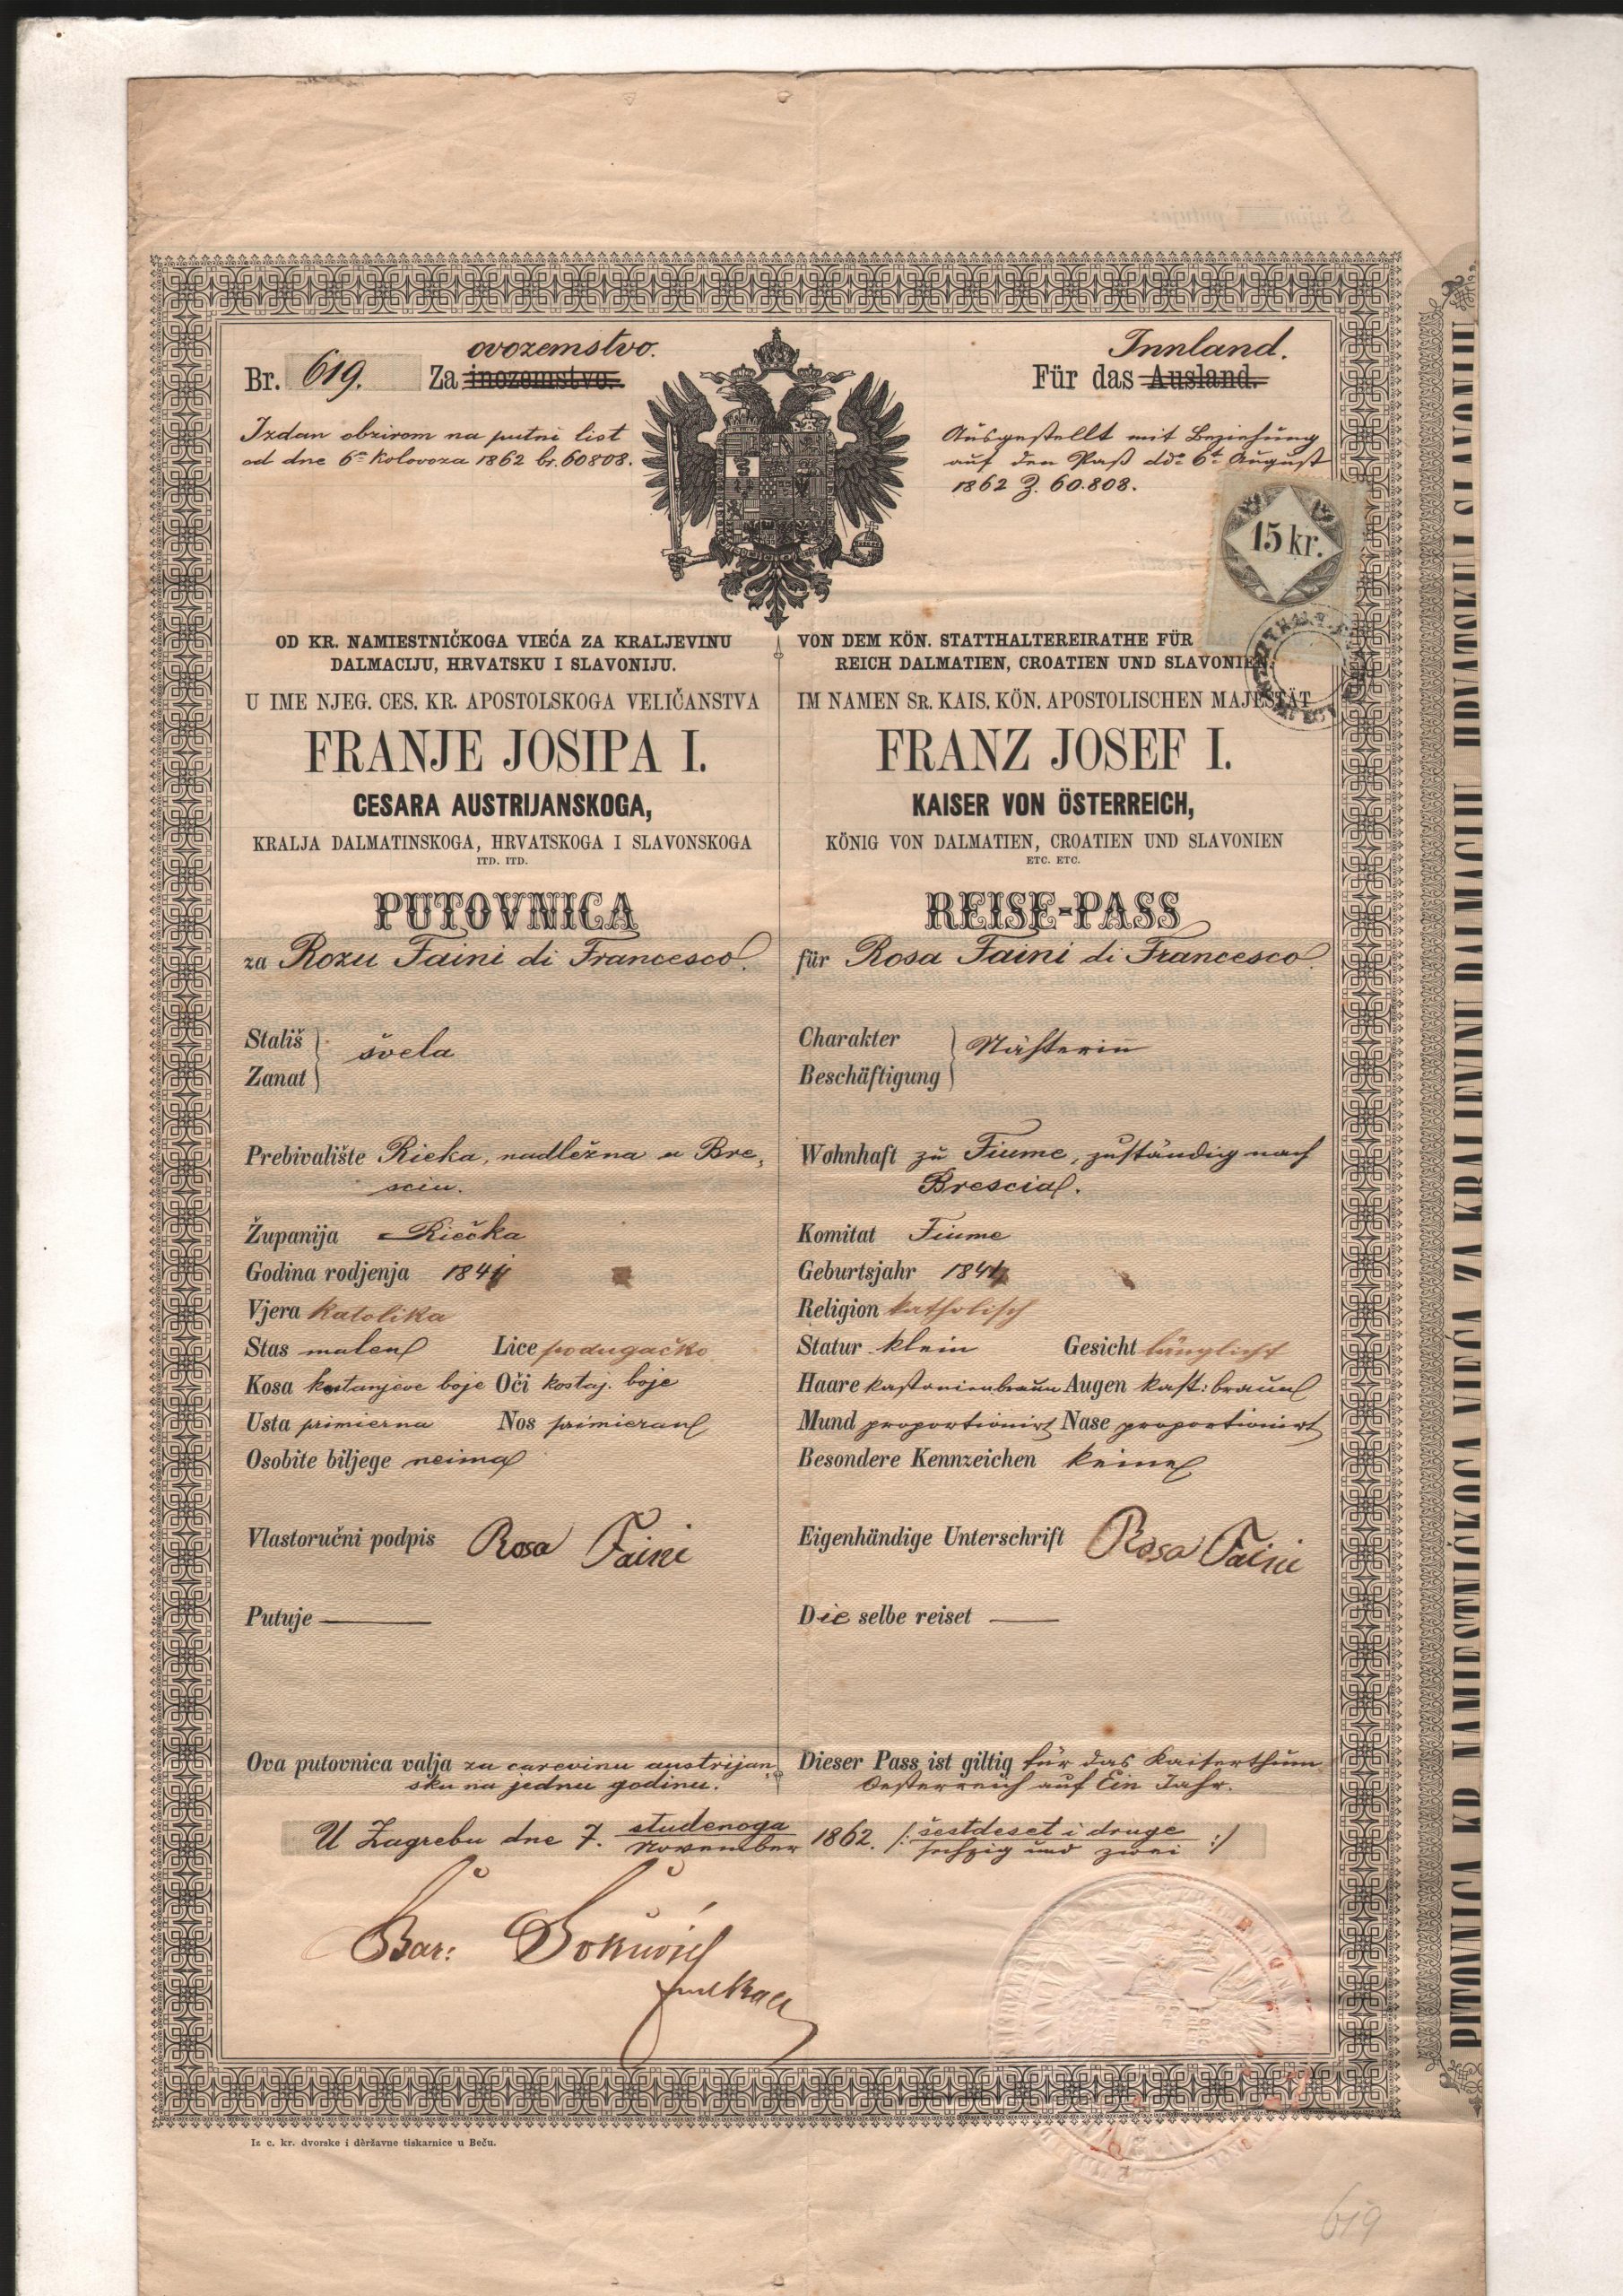 ovozemstvo.
Br. 619. Za inozemstvo.
Izdan obzirom na putni list
od dne 6a Kolovoza 1862 br. 60808.
Innland.
Für das Ausland.
Ausgestellt mit Beziehung
auf den Paß ddo 6t August
1862 Z. 60.808.
15 kr.
OD KR. NAMIESTNIČKOGA VIEĆA ZA KRALJEVINU
DALMACIJU, HRVATSKU I SLAVONIJU.
U IME NJEG. CES. KR. APOSTOLSKOGA VELIČANSTVA
FRANJE JOSIPA I.
CESARA AUSTRIJANSKOGA,
KRALJA DALMATINSKOGA, HRVATSKOGA I SLAVONSKOGA
ITD. ITD.
PUTOVNICA
za Rozu Faini di Francesco.
Stališ
Zanat
švela
Prebivalište Rieka, nadležna u Bre,
sciu.
Županija Riečka
Godina rodjenja 1844
Vjera Katolika
Stas malen Lice podugačko
Kosa kestanjeve boje Oči kostaj. boje
Usta primierna Nos primieran
Osobite biljege neima
Vlastoručni podpis Rosa Faini
Putuje —
Ova putovnica valja za carevinu austrijan,
sku na jednu godinu.
VON DEM KÖN. STATTHALTEREIRATHE FÜR
REICH DALMATIEN, CROATIEN UND SLAVONIEN.
IM NAMEN SR. KAIS. KÖN. APOSTOLISCHEN MAJESTÄT
FRANZ JOSEF I.
KAISER VON ÖSTERREICH,
KÖNIG VON DALMATIEN, CROATIEN UND SLAVONIEN
ETC. ETC.
REISE-PASS
für Rosa Faini di Francesco.
Charakter
Beschäftigung
Nähterin
Wohnhaft zu Fiume, zuständig nach
Brescia.
Komitat Fiume
Geburtsjahr 1844
Religion katholisch
Statur klein Gesicht länglicht
Haare kastanienbraun Augen kast: braun
Mund proportionirt Nase proportionirt
Besondere Kennzeichen keine
Eigenhändige Unterschrift Rosa Faini
Die selbe reiset —
Dieser Pass ist giltig für das Kaiserthum
Oesterreich auf Ein Jahr.
U Zagrebu dne 7. studenoga 1862. /: šestdeset i druge :/
November sechzig und zwei
Bar:
Iz c. kr. dvorske i dèržavne tiskarnice u Beču.
619
PUTOVNICA KR. NAMIESTNIČKOGA VIEĆA ZA KRALJEVINU DALMACIJU, HRVATSKU I SLAVONIJU